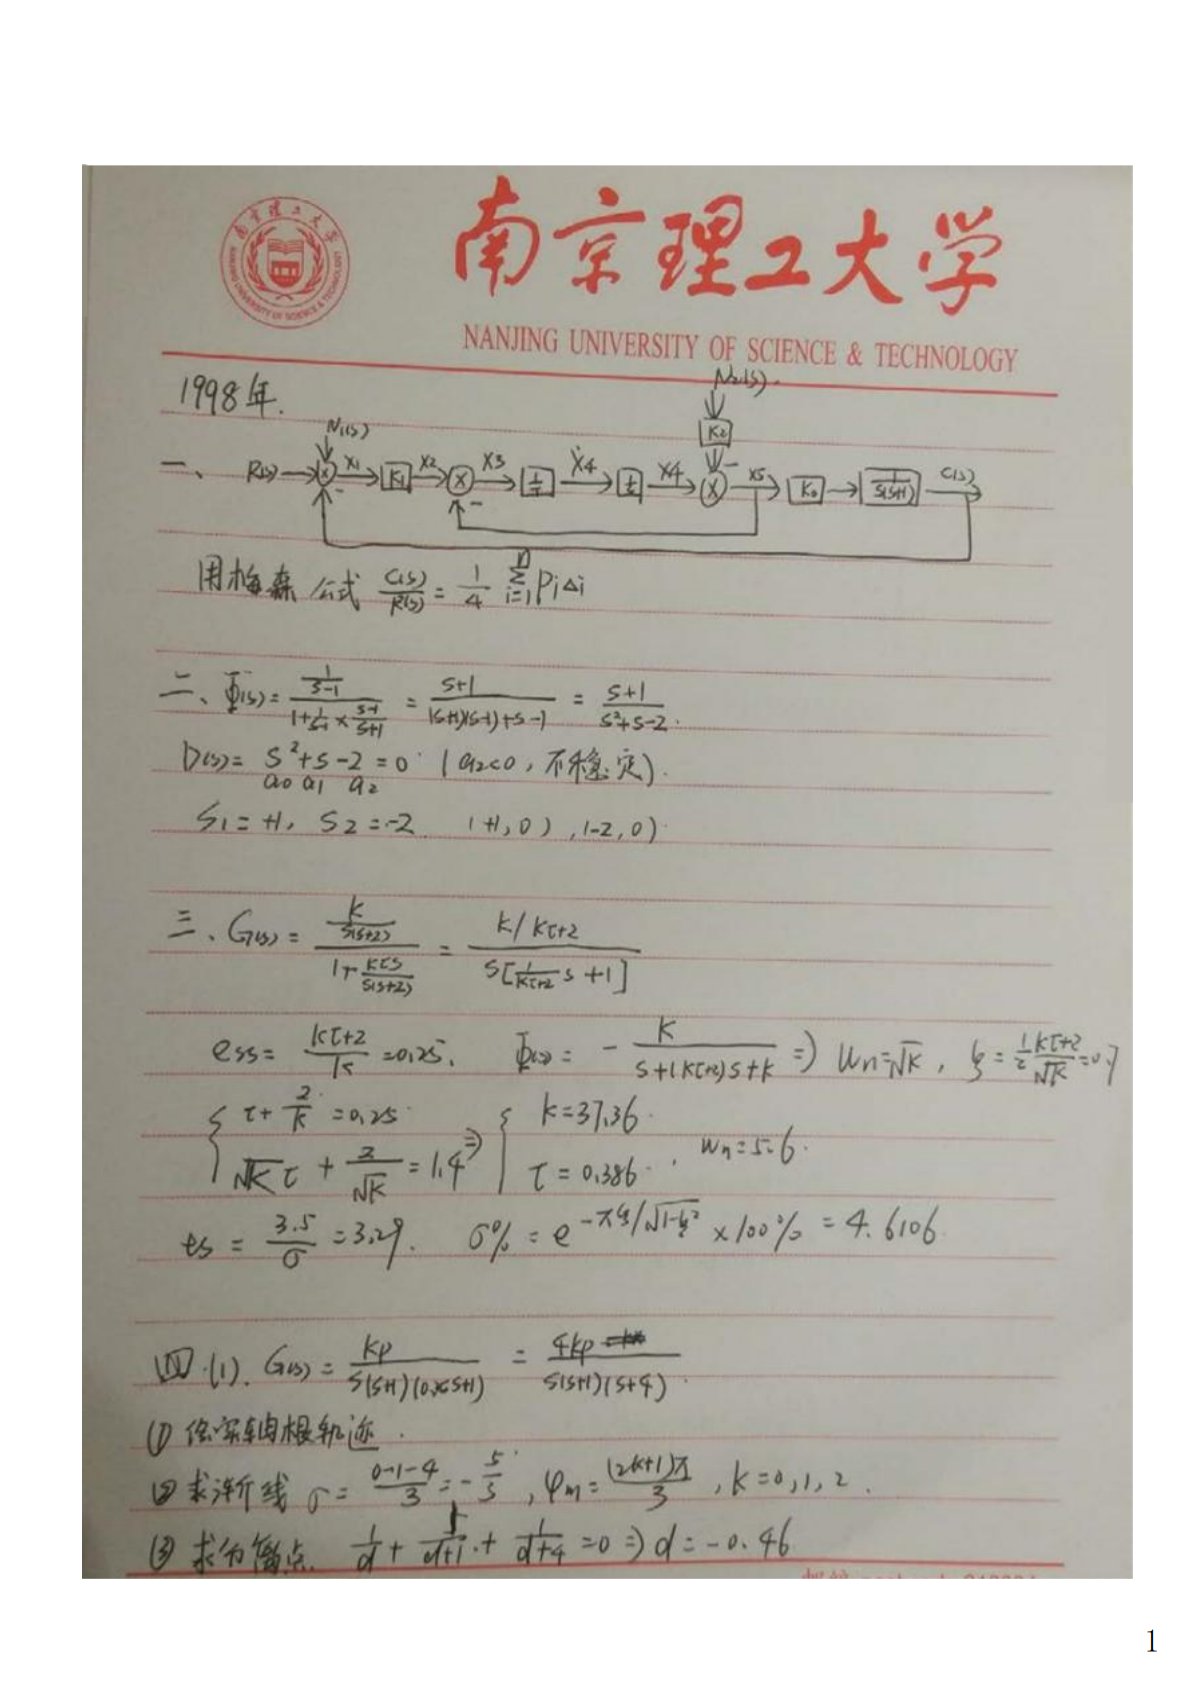 南京理工大学
NANJING UNIVERSITY OF SCIENCE & TECHNOLOGY
1998年.
N₂(s).
N₁(s)
K₂
一、 R(s) X₁ K₁ X₂ X3 1/T Ẋ4 1/s X4 X5 K₀ 1/s(s+1) C(s)
用梅森公式 C(s)/R(s) = 1/4 Σ(i=1→n) Pi△i
二、Φ(s) = (1/(s-1))/(1+1/(s-1) × (s-1)/(s+1)) = (s+1)/((s+1)(s-1)+s-1) = (s+1)/(s²+s-2).
D(s) = s²+s-2=0 (a₂<0, 不稳定).
a₀ a₁ a₂
S₁=+1, S₂=-2 (+1,0), (-2,0)
三、G(s) = (K/s(s+2))/(1+Kτs/s(s+2)) = (K/Kτ+2)/(s[1/(Kτ+2) s+1])
ess = (Kτ+2)/K = 0.25. Φ(s) = - K/(s+(Kτ+2)s+K) ⇒ Wn=√K, ξ = 1/2 (Kτ+2)/√K = 0.7
{ τ+2/K = 0.25 { K=37.36.
√K τ + 2/√K = 1.4 ⇒ τ = 0.386. , Wn=5.6.
ts = 3.5/σ = 3.29. σ% = e^(-πξ/√(1-ξ²)) ×100% = 4.6106.
四.(1). G(s) = Kp/(s(s+1)(0.25s+1)) = 4Kp/(s(s+1)(s+4)).
① 绘实轴根轨迹.
② 求渐近线 σ = (0-1-4)/3 = -5/3, φm = (2k+1)π/3, k=0,1,2.
③ 求分离点. 1/d + 1/(d+1) + 1/(d+4) = 0 ⇒ d = -0.46
1